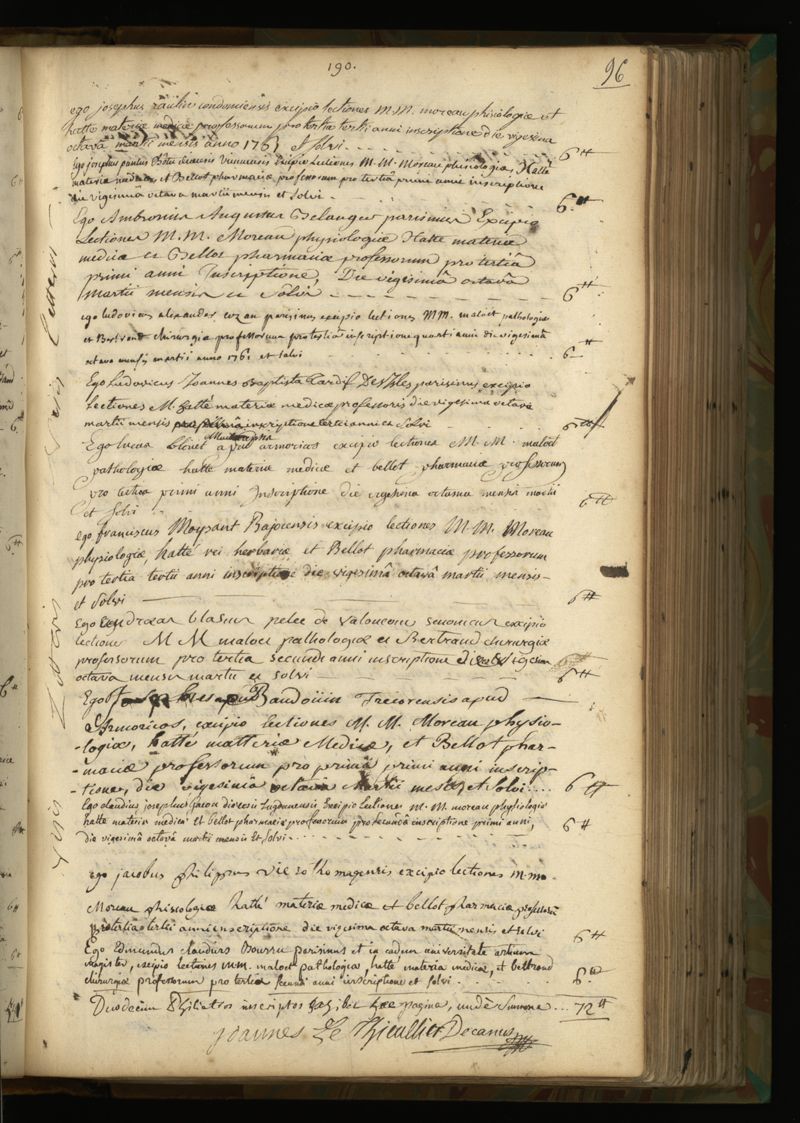 190.
96
ego josephus raulin condomiensis excipio lectiones M.M. moreau phisiologiæ et
hatte materiæ medicæ professorum pro tertia tertii anni inscriptione die vigesima
octava martii mensis anno 1761 et solvi 6 ₶
Ego josephus paulus excipio Lectiones M.M. Moreau phisiologiæ, Hatté
materiæ medicæ et Bellot pharmaciæ professorum pro tertiâ primi anni inscriptione
die vigesimâ octava martii mensis et solvi 6 ₶
Ego Ambrosius Augustus Belanger parisinus Excipio
Lectiones M.M. Moreau physiologiæ Hatte materiæ
medicæ et Bellot pharmaciæ professorum pro tertiâ
primi anni Inscriptione, Die vigesimâ octavâ
Martii mensis et solvi 6 ₶
ego ludovicus alexander parisinus excipio lectiones MM. maloet pathologiæ
et Bertrand chirurgiæ professorum pro tertiâ inscriptione quarti anni die vigesimâ
octava mensis martii anno 1761 et solvi 6 ₶
Ego Ludovicus Joannes Baptista Tardif Desisles parisinus excipio
Lectiones M. hatté materiæ medicæ professoris die vigesima octavâ
martii mensis inscriptione tertii anni et solvi 6 ₶
Ego lucas blouet apud armoricos excipio lectiones M.M. maloet
pathologiæ hatte materiæ medicæ et bellot pharmaciæ professorum
pro tertia primi anni Inscriptione die vigesima octava mensis martii
et solvi 6 ₶
ego franciscus Moysant Bajocensis excipio lectiones M.M. Moreau
physiologiæ, hatté rei herbariæ et Bellot pharmaciæ professorum
pro tertia tertii anni inscriptione die vigesimâ octavâ martii mensis
et solvi 6 ₶
Ego andreas blasius pelée de valoncour senonicus excipio
lectiones M M maloet pathologiæ et Bertrand chirurgiæ
professorum pro tertia secundi anni inscriptione die vigesima
octava mensis martii et solvi 6 ₶
Ego Baudoüin Trecorensis apud
Armoricos, excipio lectiones M. M. Moreau physio-
-logiæ, hatté matteriæ Medicæ, et Bellot phar-
-maciæ professorum pro primâ primi anni inscrip-
-tione, die vigesimâ octavâ Martii mensis et Solvi 6 ₶
Ego claudius josephus diœcesis Lugdunensis, Excipio Lectiones M. M. moreau physiologiæ
hatte materiæ medicæ et bellot pharmaciæ professorum pro secundâ inscriptione primi anni, 6 ₶
die vigesimâ octavâ martii mensis Et Solvi
ego jacobus philippus vie rothomagensis excipio lectiones m.m.
Moreau phisiologiæ hatté materiæ medicæ et bellot pharmaciæ professorum
pro tertia tertii anni inscriptione die vigesima octava martii mensis et solvi 6 ₶
Ego Edmundus Claudius Bourru parisinus et in eadem universitate artium
magister, excipio lectiones MM. maloet pathologiæ, hatté materiæ medicæ, et bertrand
chirurgiæ professorum pro tertiâ secundi anni inscriptione et solvi 6 ₶
Duodecim Philiatros inscriptos hac pagina, unde Summa 72 ₶
Joannes Le Thieullier Decanus